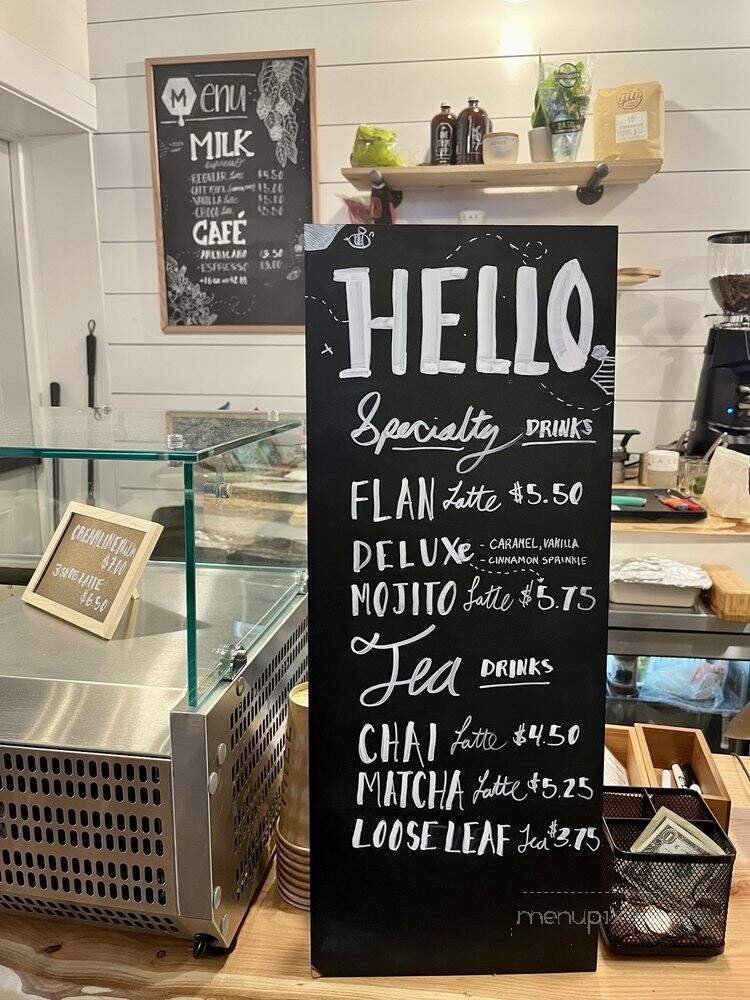 Menu
MILK
espresso
- REGULAR Latte $4.50
- VANILLA Latte $5.00
- CHOCO Latte $5.50
CAFÉ
- AMERICANO $3.50
- ESPRESSO $3.00
HELLO
Specialty DRINKS
FLAN Latte $5.50
DELUXe - CARAMEL, VANILLA
- CINNAMON SPRINKLE
MOJITO Latte $5.75
Tea DRINKS
CHAI Latte $4.50
MATCHA Latte $5.25
LOOSE LEAF Tea $3.75
CREAMLINE MILK
$7.00
$6.50
menupix